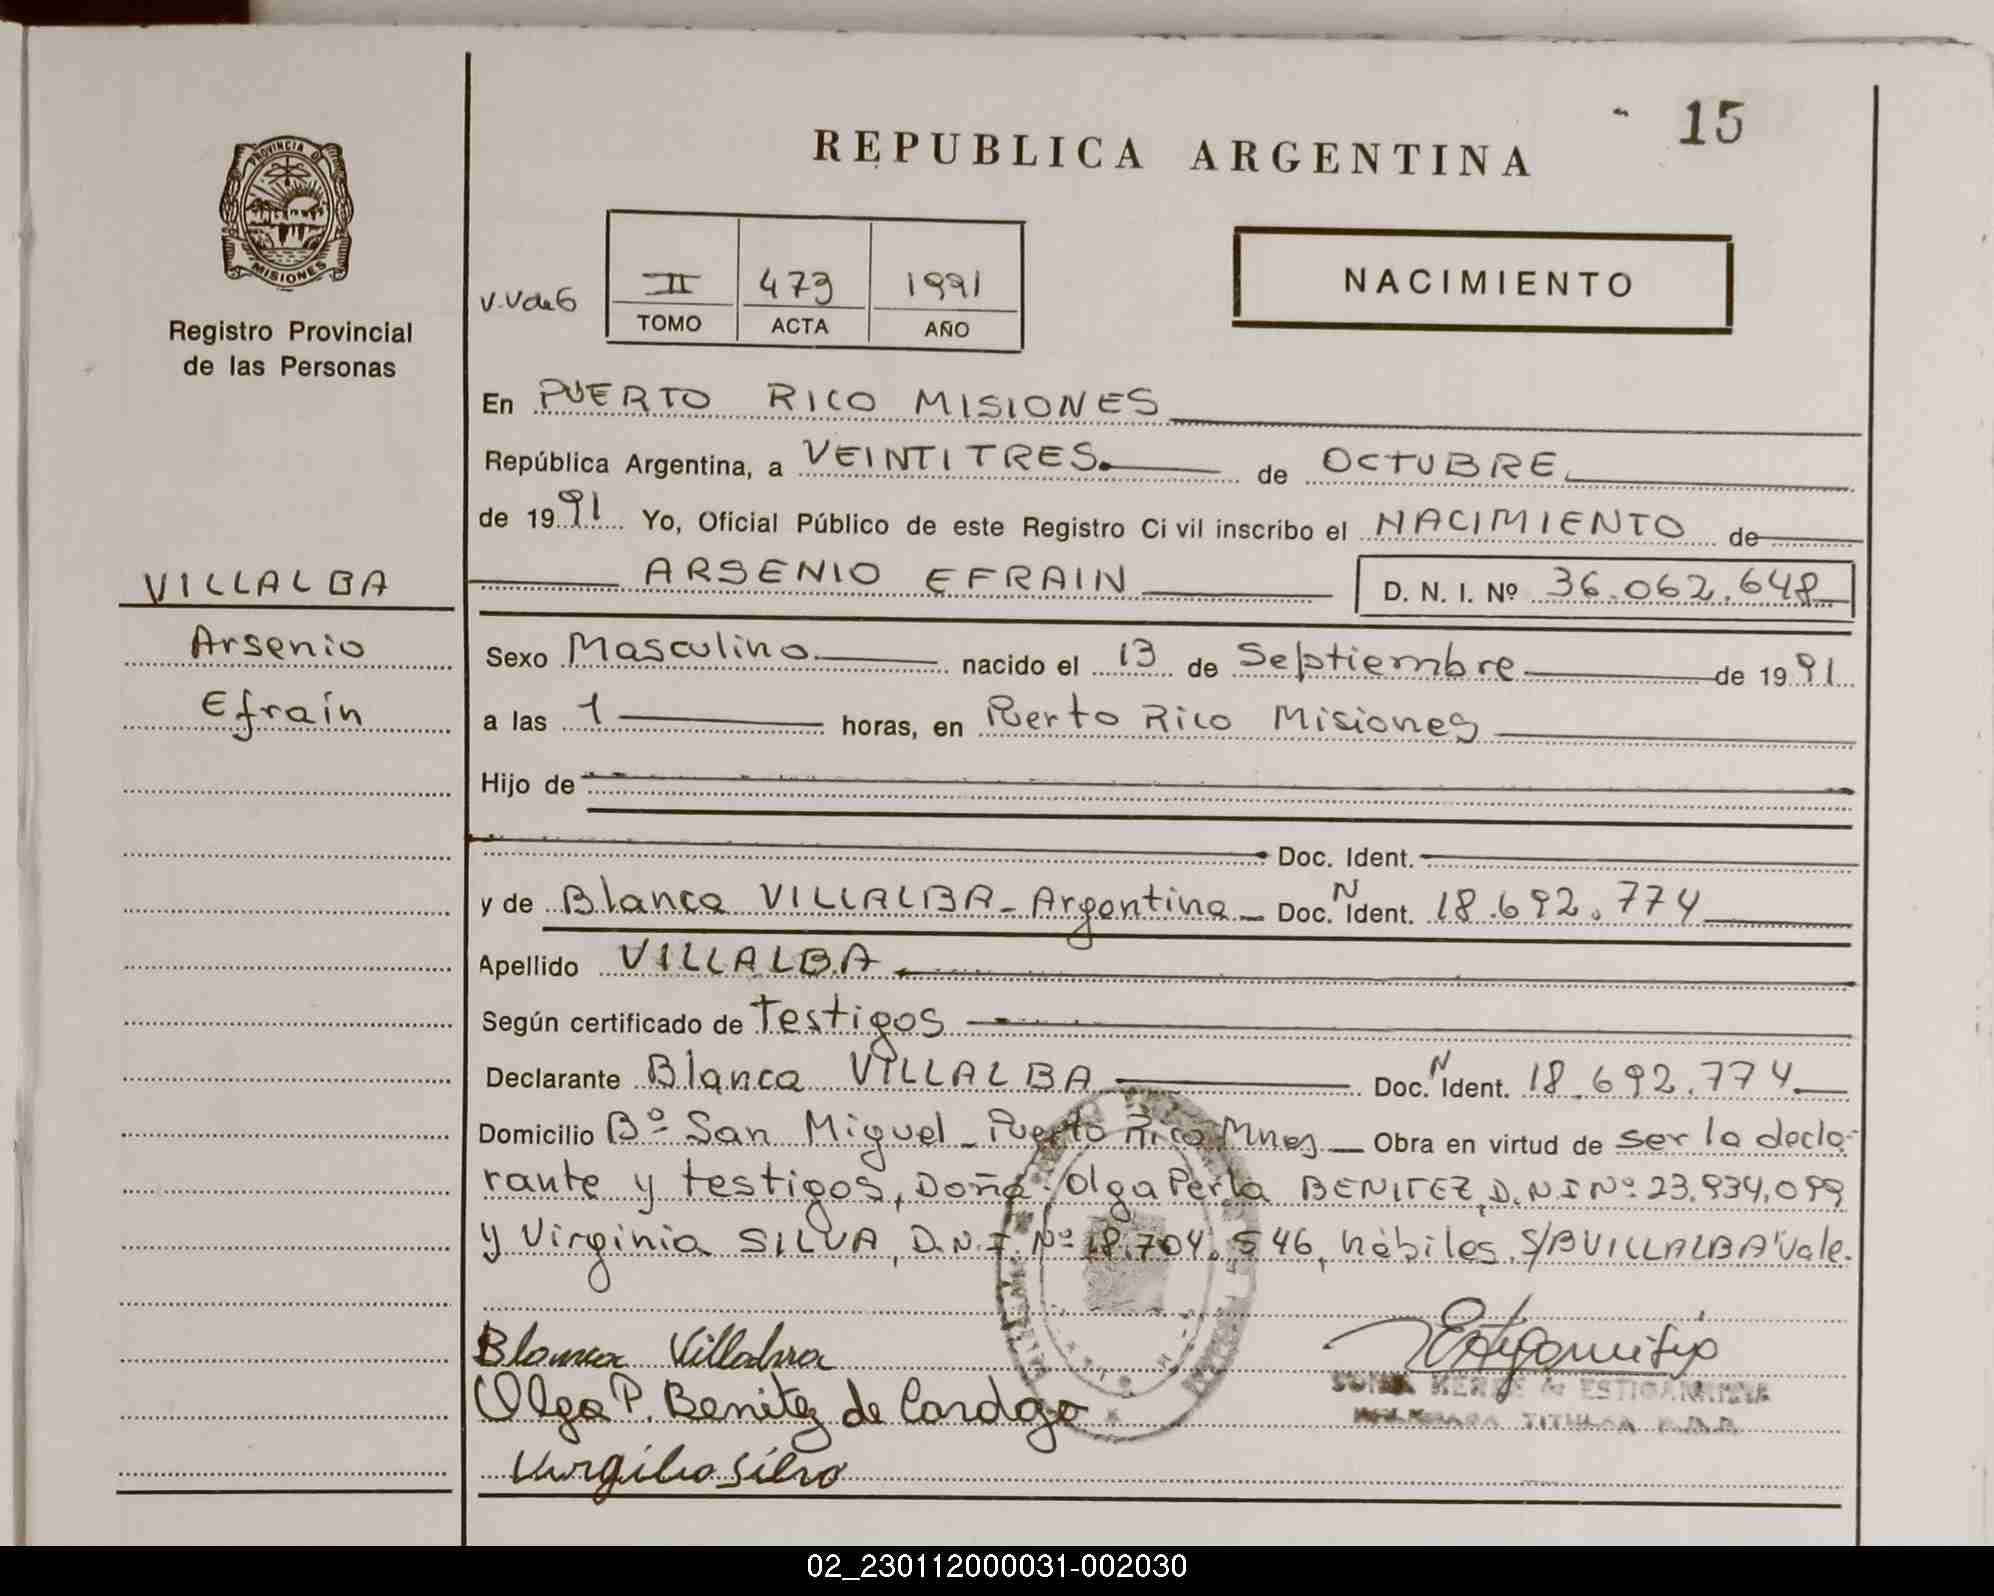 15
REPUBLICA ARGENTINA
PROVINCIA DE
MISIONES
Registro Provincial
de las Personas
V.Vde6
II 473 1991
TOMO ACTA AÑO
NACIMIENTO
En PUERTO RICO MISIONES
República Argentina, a VEINTITRES. de OCTUBRE
de 1991 Yo, Oficial Público de este Registro Civil inscribo el NACIMIENTO de
ARSENIO EFRAIN D. N. I. Nº 36.062.648
VILLALBA
Arsenio
Efraín
Sexo Masculino nacido el 13 de Septiembre de 1991
a las 1 horas, en Puerto Rico Misiones
Hijo de
Doc. Ident.
y de Blanca VILLALBA - Argentina - Doc. N Ident. 18.692.774
Apellido VILLALBA
Según certificado de Testigos
Declarante Blanca VILLALBA Doc. N Ident. 18.692.774
Domicilio Bº San Miguel - Puerto Rico Mnes Obra en virtud de ser la decla-
rante y testigos, Doña: Olga Perla BENITEZ, D.N.I Nº 23.934.099
y Virginia SILVA, D.N.I. Nº 18.704.546, hábiles. S/B VILLALBA "Vale.
Blanca Villalva
Olga P. Benitez de Cardozo
Virginia Silva
ESTIGARRIBIA
TITULAR
02_230112000031-002030